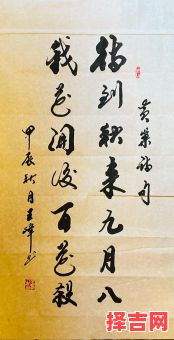 待到秋来九月八
我花开后百花杀
黄巢诗句
甲辰秋月王峰书
择吉网